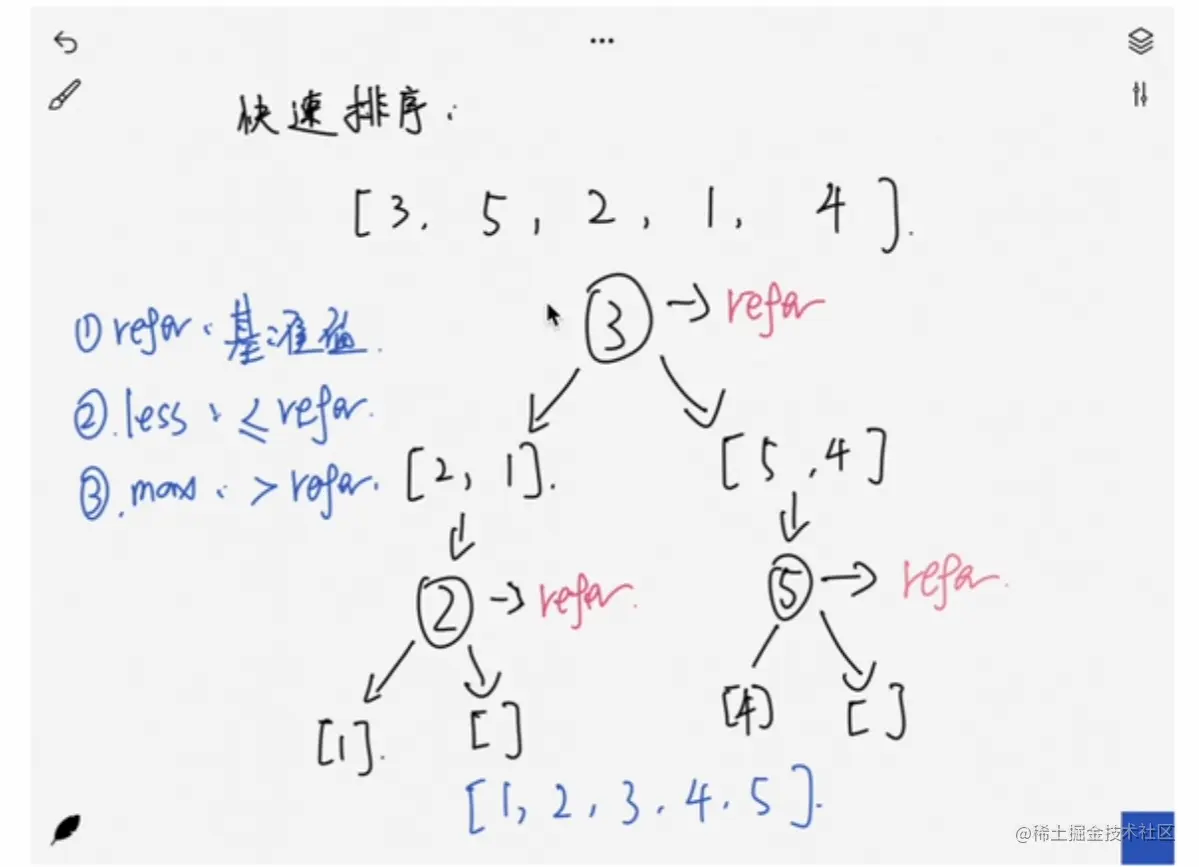 快速排序:
[3, 5, 2, 1, 4].
③ → refer
① refer: 基准值.
②. less: ≤ refer.
③. max: > refer.
[2, 1]. [5, 4]
② → refer. ⑤ → refer.
[1]. [ ] [4] [ ]
[1, 2, 3, 4, 5].
@稀土掘金技术社区